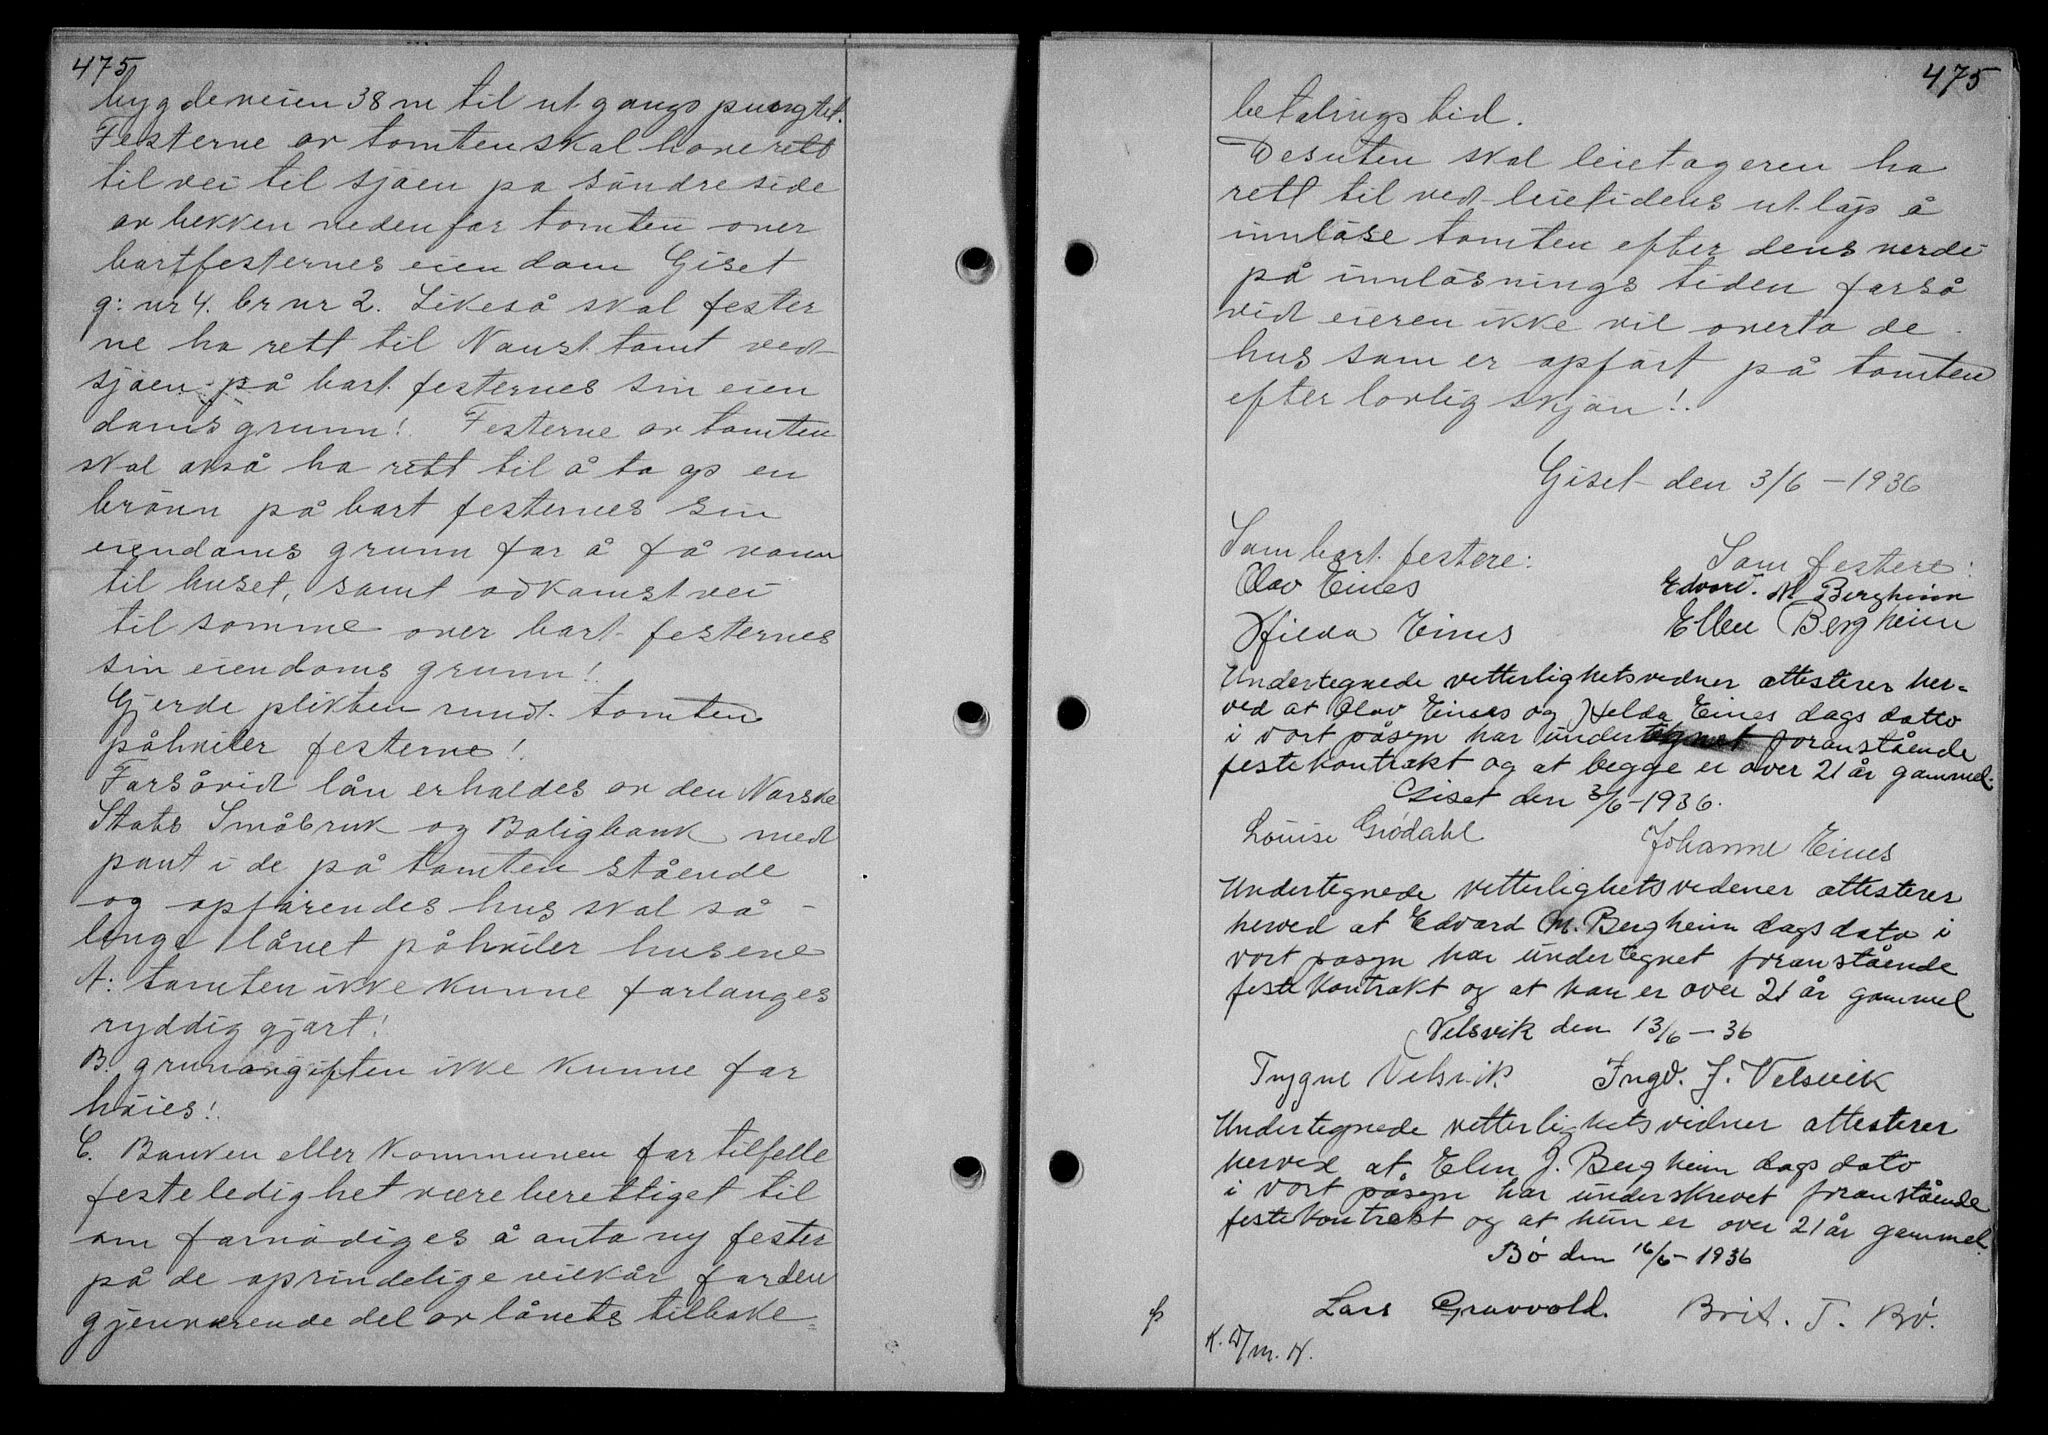 475
bygdeveien 38 m til utgangspungtet.
Festerne av tomten skal have rett
til vei til sjøen på søndre side
av bekken nedenfor tomten over
bortfesternes eiendom Giset
g: nr 4. br nr 2. Likeså skal fester
ne ha rett til Naust tomt ved
sjøen på bort festernes sin eien
doms grunn! Festerne av tomten
skal også ha rett til å ta op en
brønn på bort festernes sin
eiendoms grunn for å få vann
til huset, samt adkomst vei
til somme over bort festernes
sin eiendoms grunn!
Gjerde plikten rundt tomten
påhviler festerne!
Forsåvidt lån erholdes av den Norske
Stats Småbruk og Boligbank med
pant i de på tomten stående
og opførendes hus skal så
lenge lånet påhviler husene
A: tomten ikke kunne forlanges
ryddig gjort!
B. grunnavgiften ikke kunne for
høies!
C. Banken eller Kommunen for tilfelle
festeledighet være berettiget til
om fornødiges å anta ny fester
på de oprindelige vilkår for den
gjenværende del av lånets tilbake=
475
betalings tid.
Desuten skal leietageren ha
rett til ved leietidens utløp å
innløse tomten efter dens verdi
på innløsnings tiden forså
vidt eieren ikke vil overta de
hus som er opført på tomten
efter lovlig skjøn!.
Giset den 3/6 – 1936
Som bort festere:
Som festere:
Olav Eines
Edvard M. Bergheim
Hilda Eines
Ellen Bergheim
Undertegnede vitterlighetsvidner attesterer her=
ved at Olav Eines og Hilda Eines dags dato
i vort påsyn har undertegnet foranstående
festekontrakt og at begge er over 21 år gammel.
Giset den 3/6 – 1936.
Louise Grødahl
Johanne Eines
Undertegnede vitterlighetsvidener attesterer
herved at Edvard M. Bergheim dags dato i
vort påsyn har undertegnet foranstående
festekontrakt og at han er over 21 år gammel
Velsvik den 13/6 – 36
Trygve Velsvik
Ingv. J. Velsvik
Undertegnede vitterlighetsvidner attesterer
herved at Elen J. Bergheim dags dato
i vort påsyn har underskrevet foranstående
festekontrakt og at hun er over 21 år gammel.
Bö den 16/6 – 1936
Lars Gravvold.
Brit. T. Bö.